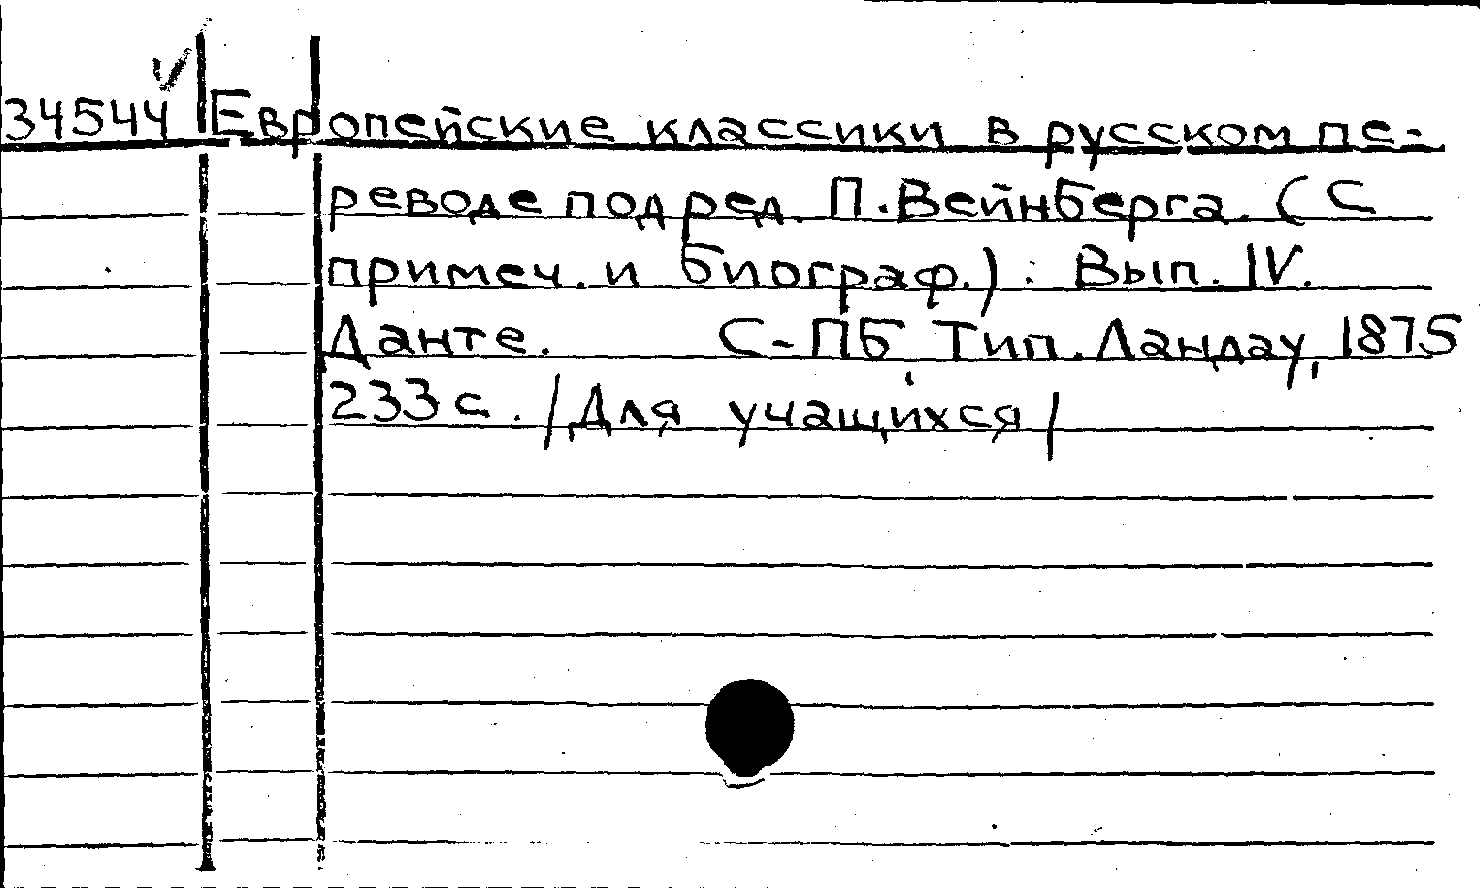 34544 Европейские классики в русском пе-
реводе под ред. П. Вейнберга. (С
примеч. и биограф.). Вып. IV.
Данте. С-ПБ Тип. Ландау, 1875
233 с. /Для учащихся/